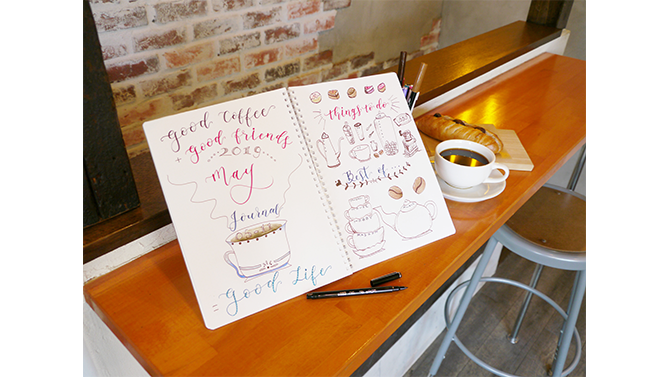 Good Coffee
+ Good Friends
2019
May
Journal
= Good Life
things to do
Best of